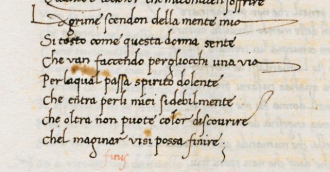 Lagrime scendon della mente mio
Si tosto come questa donna sente
Che van faccendo pergliocchi una vio
Perlaqual passa spirito dolente
Che entra perli miei si debilmente
Che oltra non puote color discourire
Chel maginar visi possa finire;
finis